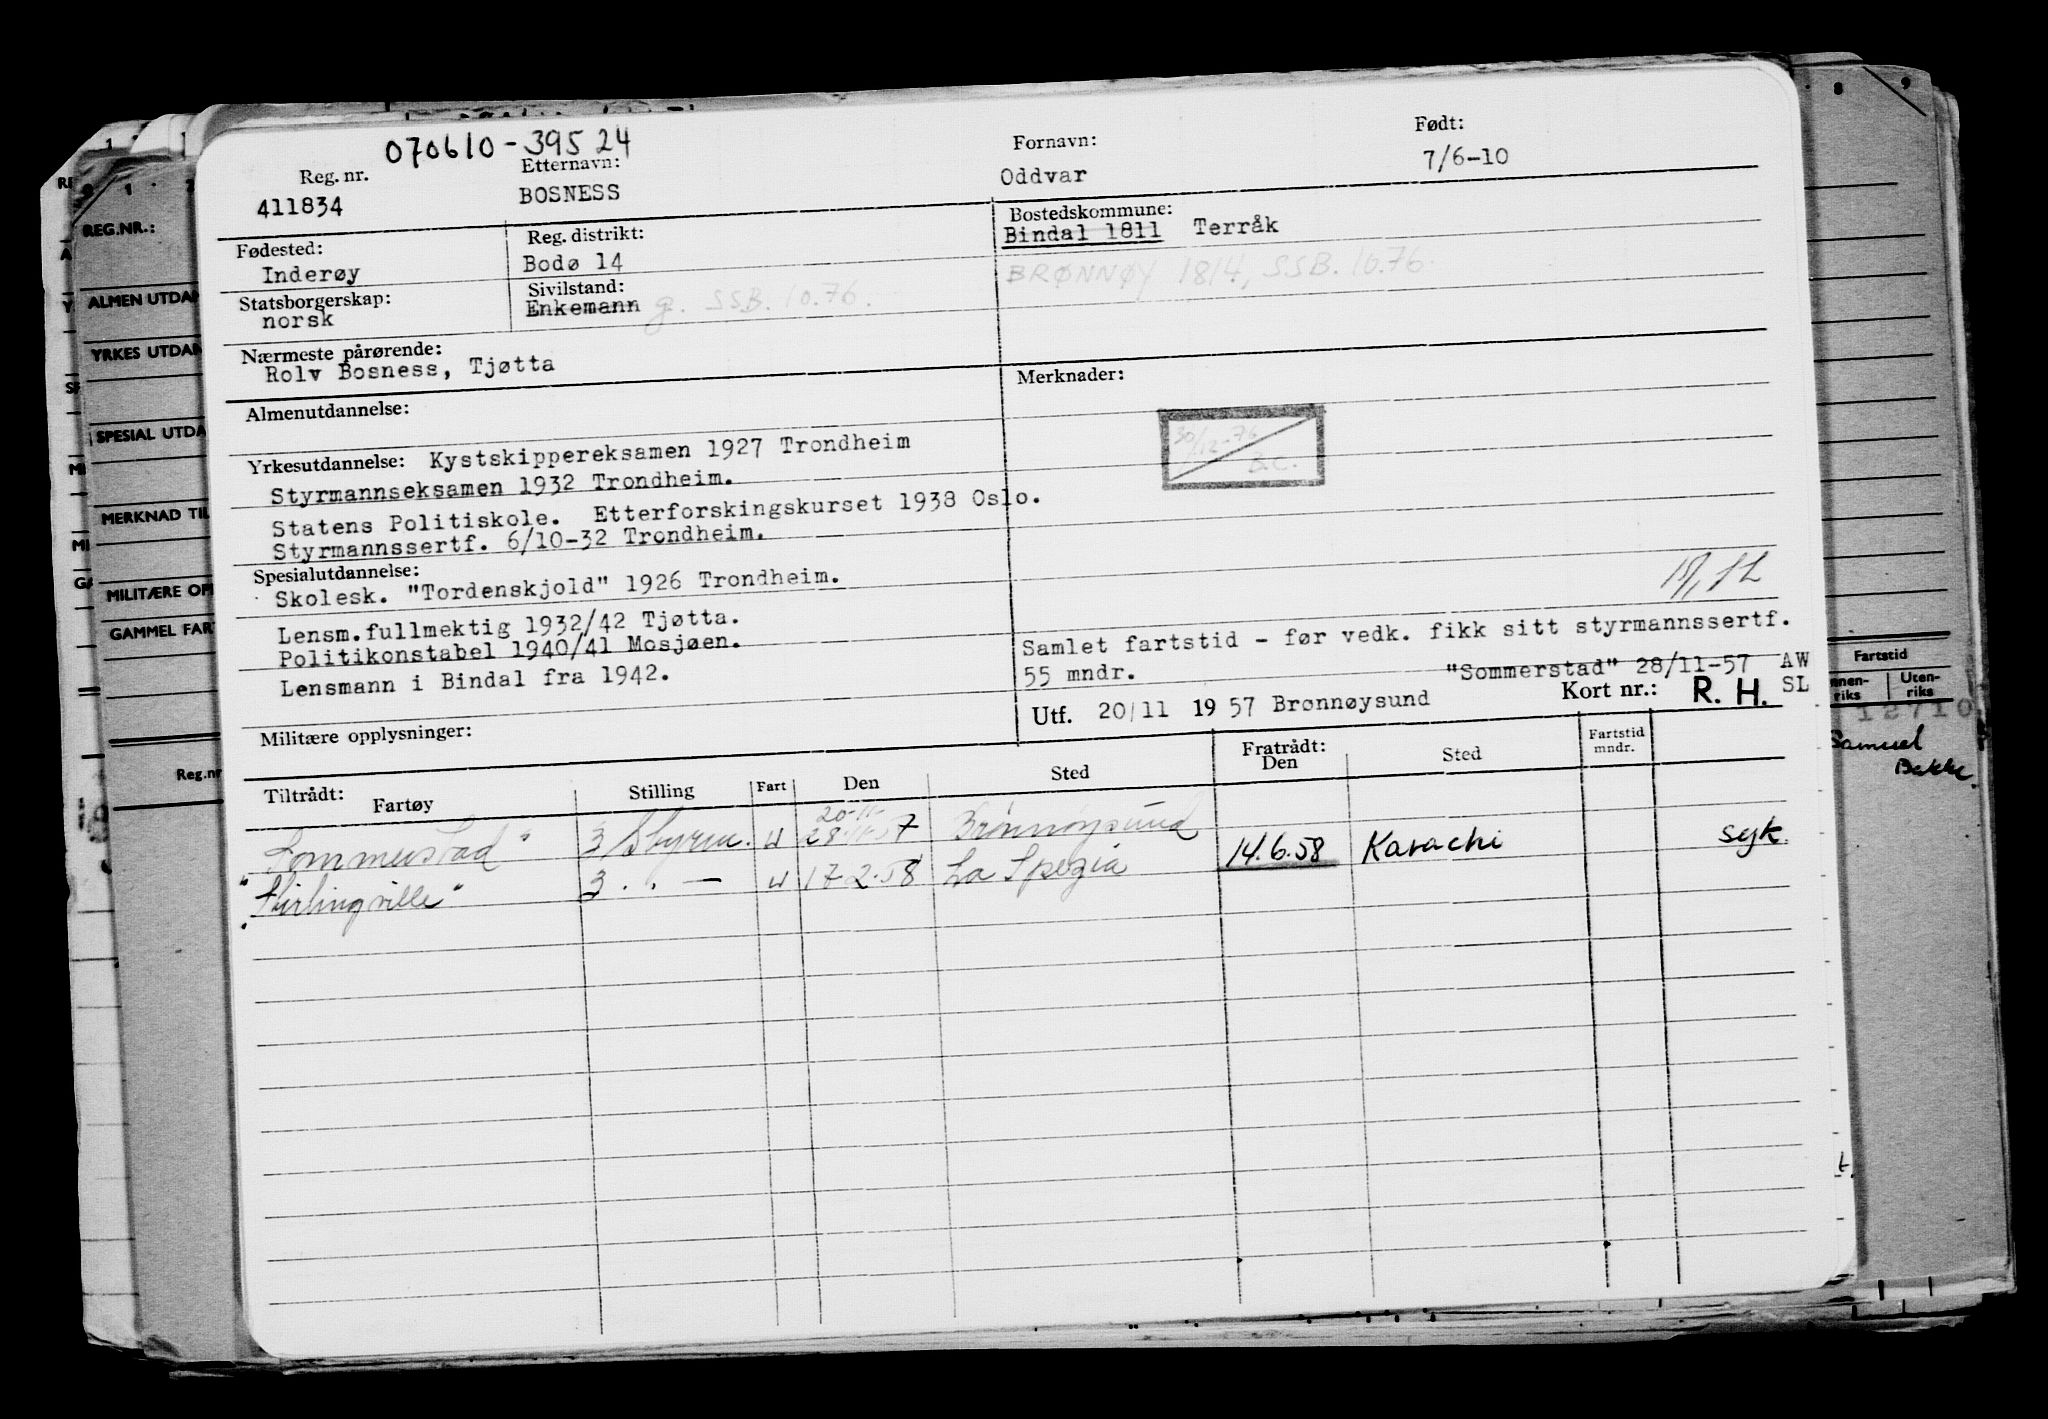 070610-39524
Reg. nr. Etternavn: Fornavn: Født:
411834 BOSNESS Oddvar 7/6-10
Fødested: Reg. distrikt: Bostedskommune:
Inderøy Bodø 14 Bindal 1811 Terråk
Statsborgerskap: Sivilstand: BRØNNØY 1814, SSB. 10.76.
norsk Enkemann g. SSB. 10.76.
Nærmeste pårørende:
Rolv Bosness, Tjøtta
Almenutdannelse: Merknader:
30/12-76
B.C.
Yrkesutdannelse: Kystskippereksamen 1927 Trondheim
Styrmannseksamen 1932 Trondheim.
Statens Politiskole. Etterforskingskurset 1938 Oslo.
Styrmannssertf. 6/10-32 Trondheim.
Spesialutdannelse:
Skolesk. "Tordenskjold" 1926 Trondheim.
Lensm.fullmektig 1932/42 Tjøtta.
Politikonstabel 1940/41 Mosjøen.
Lensmann i Bindal fra 1942.
Samlet fartstid - før vedk. fikk sitt styrmannssertf.
55 mndr. "Sommerstad" 28/11-57 AW
Utf. 20/11 1957 Brønnøysund Kort nr.: R. H. SL
Militære opplysninger:
Tiltrådt: Fartøy Stilling Fart Den Sted Fratrådt: Den Sted Fartstid mndr.
20-11-
"Sommerstad" 3 Styrm. u 28-11-57 Brønnøysund
"Stirlingville" 3 " - u 17-2-58 La Spezia 14.6.58 Karachi syk.
REG.NR.:
ALMEN UTDAN
YRKES UTDAN
SPESIAL UTDA
MERKNAD TIL
MILITÆRE OP
GAMMEL FAR
Reg.nr
8 9
Fartstid
Uten-
riks
12710
Samuel
Bakke